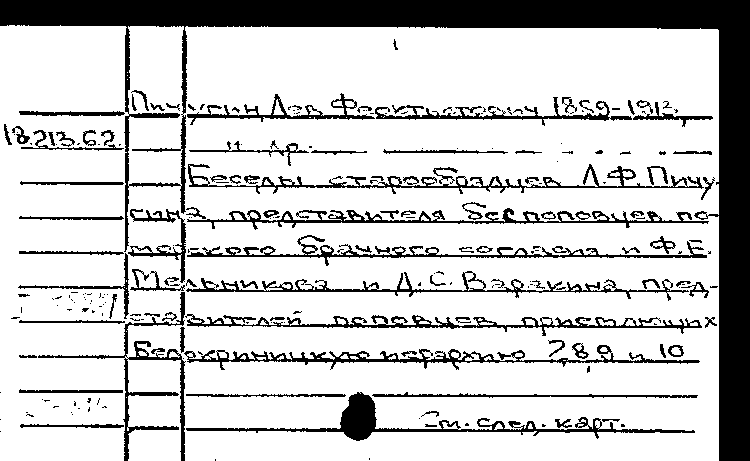 Пичугин Лев Феоктистович, 1859-1913,
18.213.6.2. и др.
Беседы старообрядцев Л.Ф. Пичу-
гина, представителя беспоповцев по-
морского брачного согласия и Ф.Е.
Мельникова и Д.С. Варакина, пред-
ставителей поповцев, приемлющих
Белокриницкую иерархию 7, 8, 9 и 10
См. след. карт.